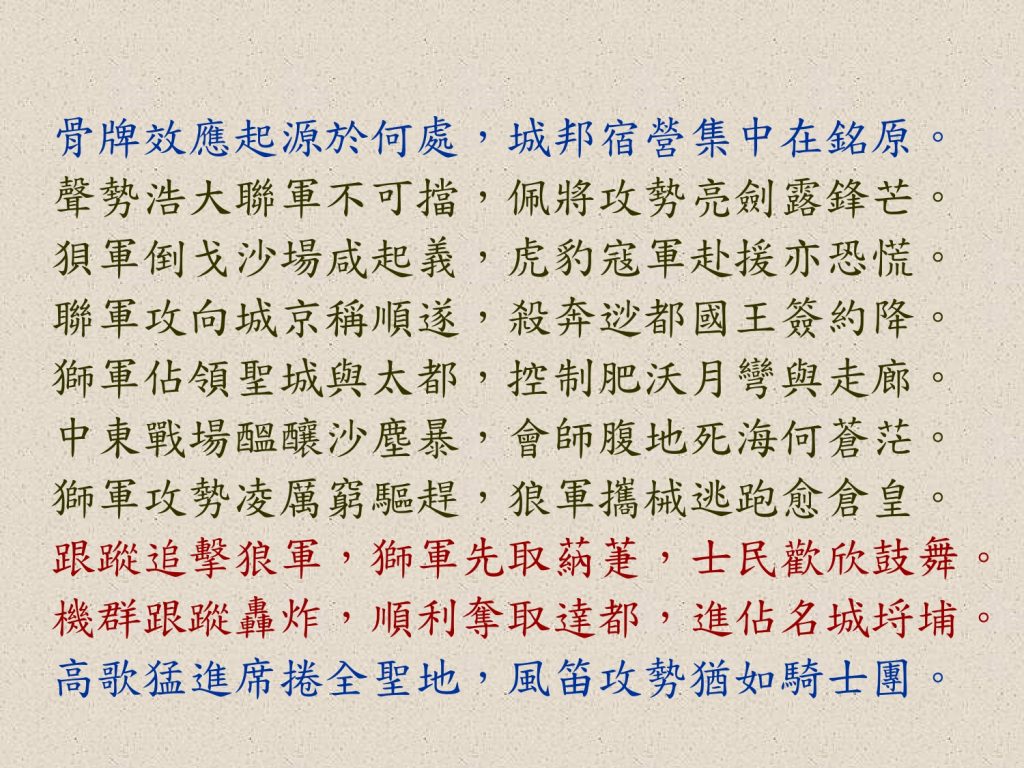 骨牌效應起源於何處，城邦宿營集中在銘原。
聲勢浩大聯軍不可擋，佩將攻勢亮劍露鋒芒。
狽軍倒戈沙場咸起義，虎豹寇軍赴援亦恐慌。
聯軍攻向城京稱順遂，殺奔逤都國王簽約降。
獅軍佔領聖城與太都，控制肥沃月彎與走廊。
中東戰場醞釀沙塵暴，會師腹地死海何蒼茫。
獅軍攻勢凌厲窮驅趕，狼軍攜械逃跑愈倉皇。
跟蹤追擊狼軍，獅軍先取蒳萐，士民歡欣鼓舞。
機群跟蹤轟炸，順利奪取達都，進佔名城埒埔。
高歌猛進席捲全聖地，風笛攻勢猶如騎士團。